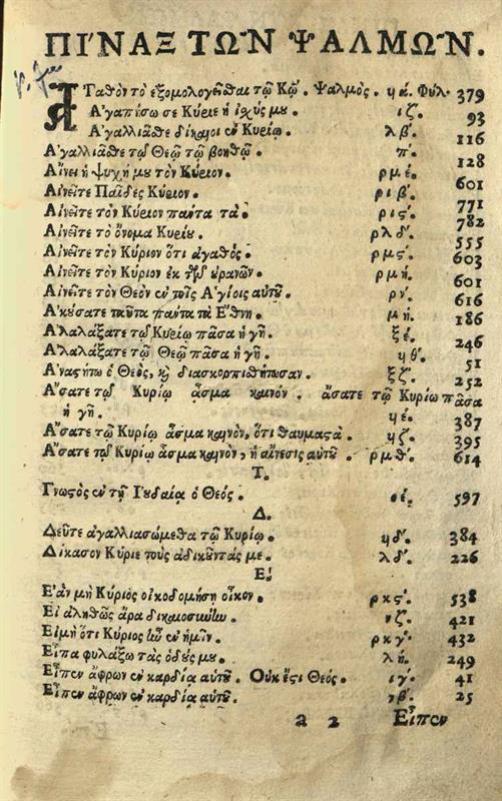 ΠΙΝΑΞ ΤΩΝ ΨΑΛΜΩΝ.
ΑΓαθὸν τὸ ἐξομολογεῖσθαι τῷ Κῷ. Ψαλμὸς. ϟά. Φύλ. 379
Αγαπήσω σε Κύριε ἡ ἰχύς μου. ιζ΄. 93
Αγαλλιᾶσθε δίκαιοι ἐν Κυρίῳ. λβ΄. 116
Αγαλλιᾶσθε τῷ Θεῷ τῷ βοηθῷ. π΄. 128
Αἴνει ἡ ψυχή μου τὸν Κύριον. ρμέ. 601
Αἰνεῖτε Παῖδες Κύριον. ριβ΄. 771
Αἰνεῖτε τὸν Κύριον παντα τα. ριϛ΄. 782
Αἰνεῖτε τὸ ὄνομα Κυρίου. ρλδ΄. 555
Αἰνεῖτε τὸν Κύριον ὅτι ἀγαθὸς. ρμϛ΄. 603
Αἰνεῖτε τὸν Κύριον ἐκ τῶν οὐρανῶν. ρμή. 601
Αἰνεῖτε τὸν Θεὸν ἐν τοῖς Ἁγίοις αὐτοῦ. ρν΄. 616
Ακούσατε ταῦτα παντα τὰ Εθνη. μή. 186
Αλαλάξατε τῷ Κυρίῳ πᾶσα ἡ γῆ. ξέ. 246
Αλαλάξατε τῷ Θεῷ πᾶσα ἡ γῆ. ϟθ΄. 51
Αναστήτω ὁ Θεὸς, καὶ διασκορπισθήτωσαν. ξζ΄. 252
Αᾴσατε τῷ Κυρίῳ ᾆσμα καινόν. ᾄσατε τῷ Κυρίῳ πᾶσα
ἡ γῆ. ϟέ. 387
Αᾴσατε τῷ Κυρίῳ ᾆσμα καινὸν, ὅτι θαυμαστὰ. ϟζ΄. 395
Αᾴσατε τῷ Κυρίῳ ᾆσμα καινὸν, ἡ αἴνεσις αὐτοῦ. ρμθ΄. 614
Γ.
Γνωστὸς ἐν τῇ Ιουδαίᾳ ὁ Θεός. οέ. 597
Δ.
Δεῦτε ἀγαλλιασώμεθα τῷ Κυρίῳ. ϟδ΄. 384
Δίκασον Κύριε τοὺς ἀδικοῦντάς με. λδ΄. 226
Ε.
Εὰν μὴ Κύριος οἰκοδομήσῃ οἶκον. ρκϛ΄. 538
Εἰ ἀληθῶς ἄρα δικαιοσύνην. νζ΄. 421
Εἰ μὴ ὅτι Κύριος ἦν ἐν ἡμῖν. ρκγ΄. 432
Εἶπα φυλάξω τὰς ὁδούς μου. λή. 249
Εἶπεν ἄφρων ἐν καρδίᾳ αὐτοῦ. Οὐκ ἔστι Θεός. ιγ΄. 41
Εἶπεν ἄφρων ἐν καρδίᾳ αὐτοῦ. νβ΄. 25
a 2 Εἶπεν